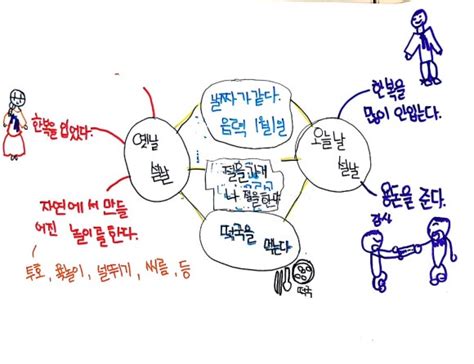 날짜가 같다.
음력 1월1일
한복을
많이 안입는다.
한복을 입었다.
옛날
설날
오늘날
설날
절을 한다
자연에서 만들
어진 놀이를 한다.
용돈을 준다.
감사
떡국을 먹는다.
투호, 윷놀이, 널뛰기, 씨름, 등
떡국